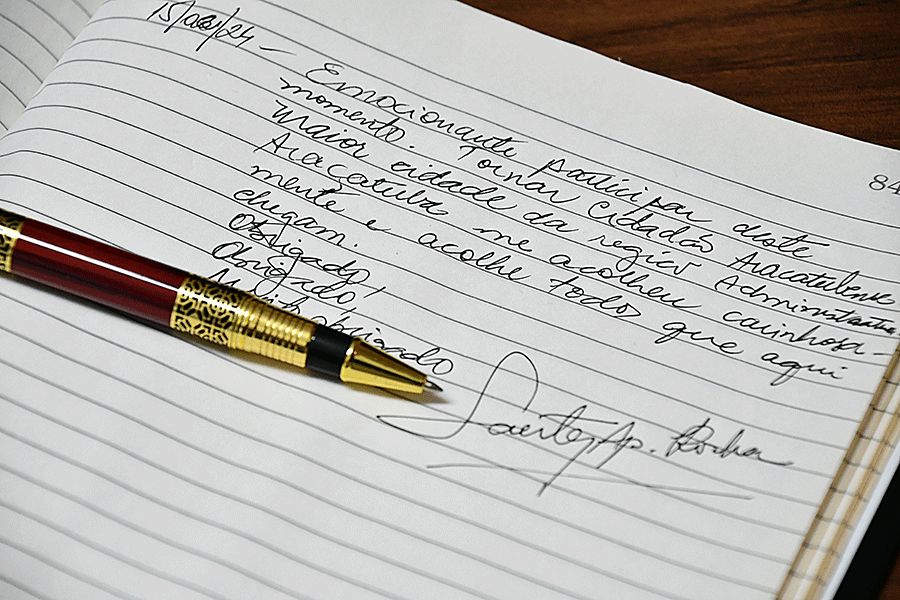 84
15/08/24 -
Emocionante participar deste
momento. Tornar Cidadão Aracatubense
Maior cidade da região Administrativa.
Aracatuba me acolheu carinhosa-
mente e acolhe todos que aqui
chegam.
Obrigado!
Obrigado!
Muito obrigado
Ap. Rocha